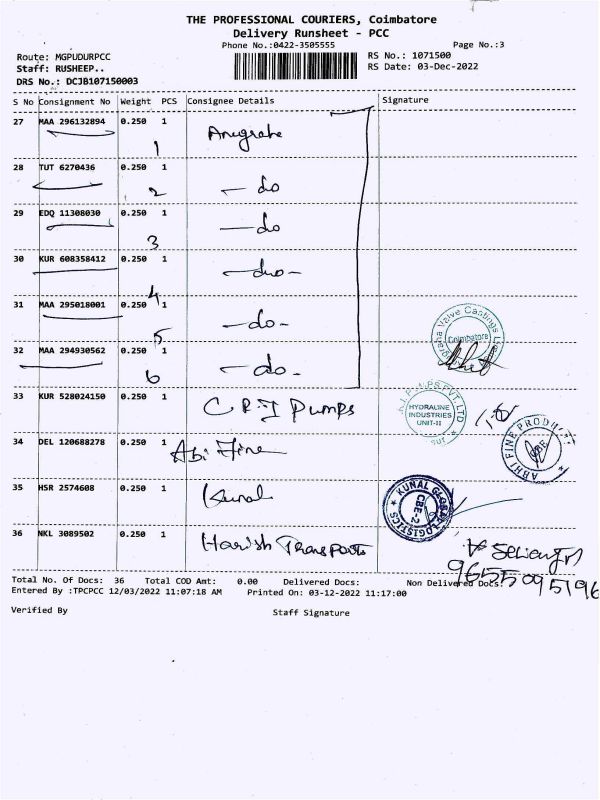 THE PROFESSIONAL COURIERS, Coimbatore
Delivery Runsheet - PCC
Phone No.:0422-3505555 Page No.:3
Route: MGPUDURPCC RS No.: 1071500
Staff: RUSHEEP.. RS Date: 03-Dec-2022
DRS No.: DCJB107150003
S No Consignment No Weight PCS Consignee Details Signature
27 MAA 296132894 0.250 1 Anugraha
1
28 TUT 6270436 0.250 1 - do
2
29 EDQ 11308030 0.250 1 - do
3
30 KUR 608358412 0.250 1 - do -
4
31 MAA 295018001 0.250 1 - do -
5
32 MAA 294930562 0.250 1 - do -
6
Valve Castings
Coimbatore
33 KUR 528024150 0.250 1 C.R.I Pumps
PVT. LTD
HYDRALINE
INDUSTRIES
UNIT-II
34 DEL 120688278 0.250 1 Abi Fine
ABHI FINE PRODUCT
CBE
35 HSR 2574608 0.250 1 Kunal
KUNAL GLOBAL LOGISTICS
CBE-2
36 NKL 3089502 0.250 1 Harish Transports
9655095196
Total No. Of Docs: 36 Total COD Amt: 0.00 Delivered Docs: Non Delivered Docs:
Entered By :TPCPCC 12/03/2022 11:07:18 AM Printed On: 03-12-2022 11:17:00
Verified By Staff Signature